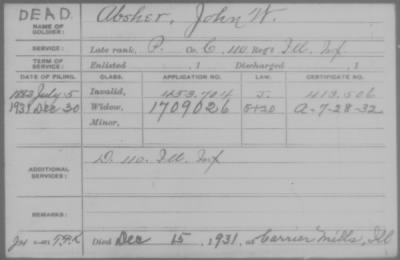 DEAD. Absher, John W.
NAME OF
SOLDIER:
SERVICE: Late rank, P. Co. C, 110 Reg't Ill. Inf
TERM OF
SERVICE: Enlisted , 1 Discharged , 1
DATE OF FILING. CLASS. APPLICATION NO. LAW. CERTIFICATE NO.
1882 July 5 Invalid, 453.704 J. 413.506
1931 Dec 30 Widow, 1709026 5+20 A-7-28-32
Minor,
ADDITIONAL
SERVICES: D. 110. Ill. Inf
REMARKS:
Died Dec 15, 1931, at Carrier Mills, Ill